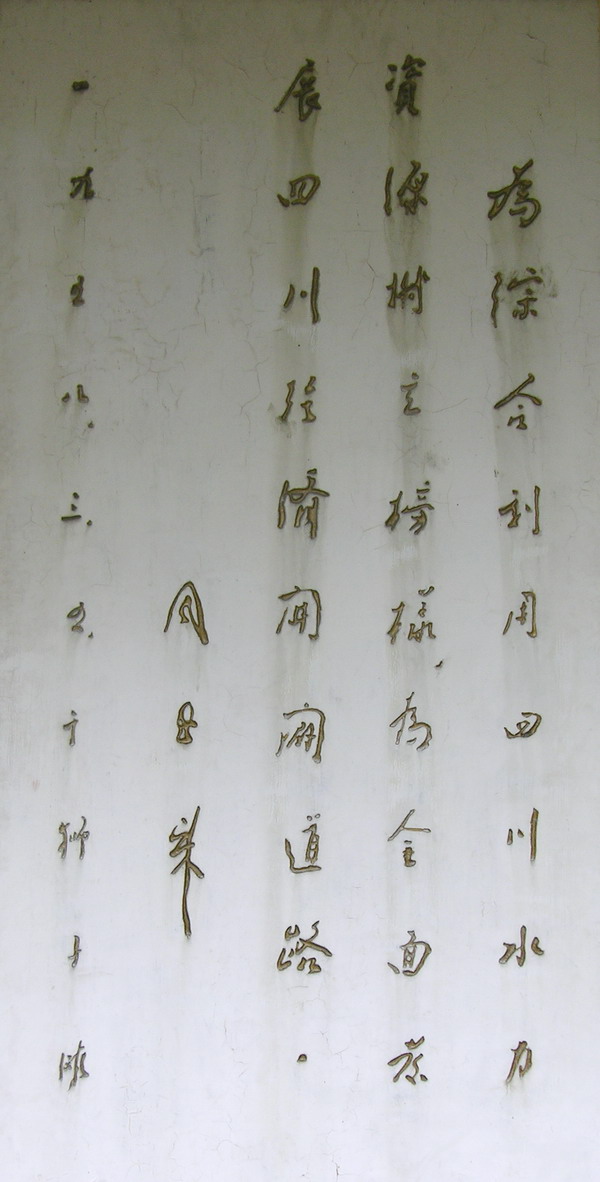 為綜合利用四川水力
資源樹立榜樣，為全面發
展四川經濟開闢道路。
周恩來
一九五八．三．五．于獅子灘